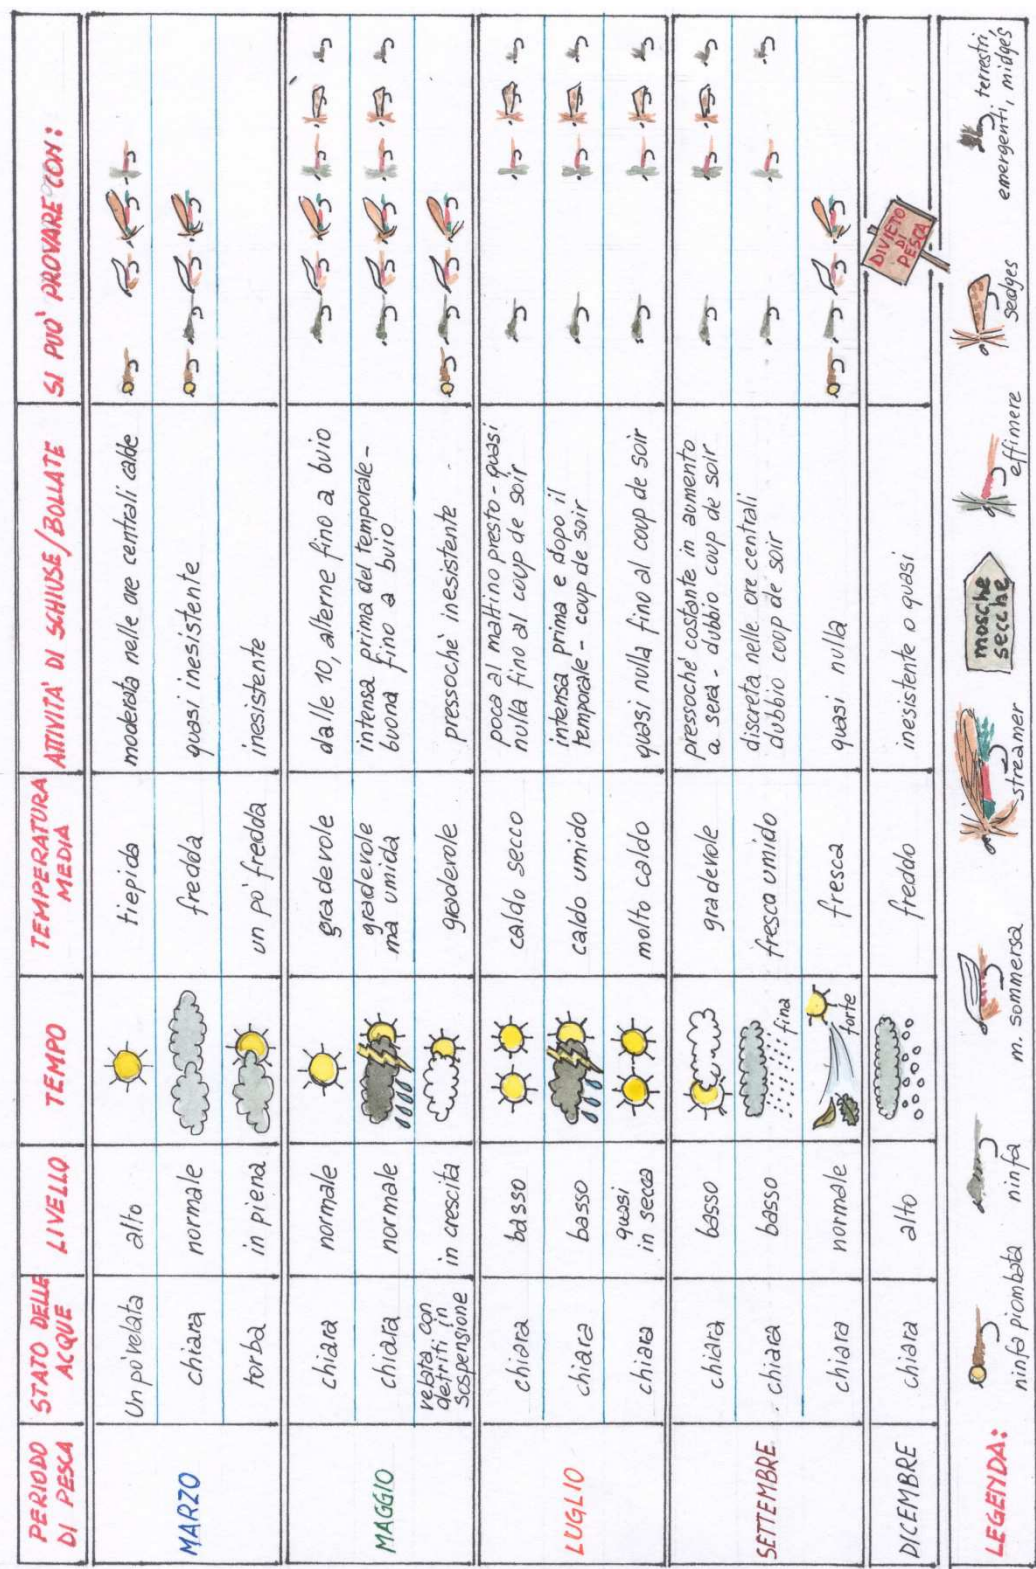 PERIODO
DI PESCA
STATO DELLE
ACQUE
LIVELLO
TEMPO
TEMPERATURA
MEDIA
ATTIVITA' DI SCHIUSE/BOLLATE
SI PUO' PROVARE CON:
MARZO
Un po' velata
alto
tiepida
moderata nelle ore centrali calde
chiara
normale
fredda
quasi inesistente
torba
in piena
un po' fredda
inesistente
MAGGIO
chiara
normale
gradevole
dalle 10, alterne fino a buio
chiara
normale
gradevole
ma umida
intensa prima del temporale -
buona fino a buio
velata con
detriti in
sospensione
in crescita
gradevole
pressochè inesistente
LUGLIO
chiara
basso
caldo secco
poca al mattino presto - quasi
nulla fino al coup de soir
chiara
basso
caldo umido
intensa prima e dopo il
temporale - coup de soir
chiara
quasi
in secca
molto caldo
quasi nulla fino al coup de soir
SETTEMBRE
chiara
basso
gradevole
pressochè costante in aumento
a sera - dubbio coup de soir
chiara
basso
fina
fresca umido
discreta nelle ore centrali
dubbio coup de soir
chiara
normale
forte
fresca
quasi nulla
DICEMBRE
chiara
alto
freddo
inesistente o quasi
DIVIETO
DI
PESCA
LEGENDA:
ninfa piombata
ninfa
m. sommersa
streamer
mosche
secche
effimere
sedges
terrestri,
emergenti, midges